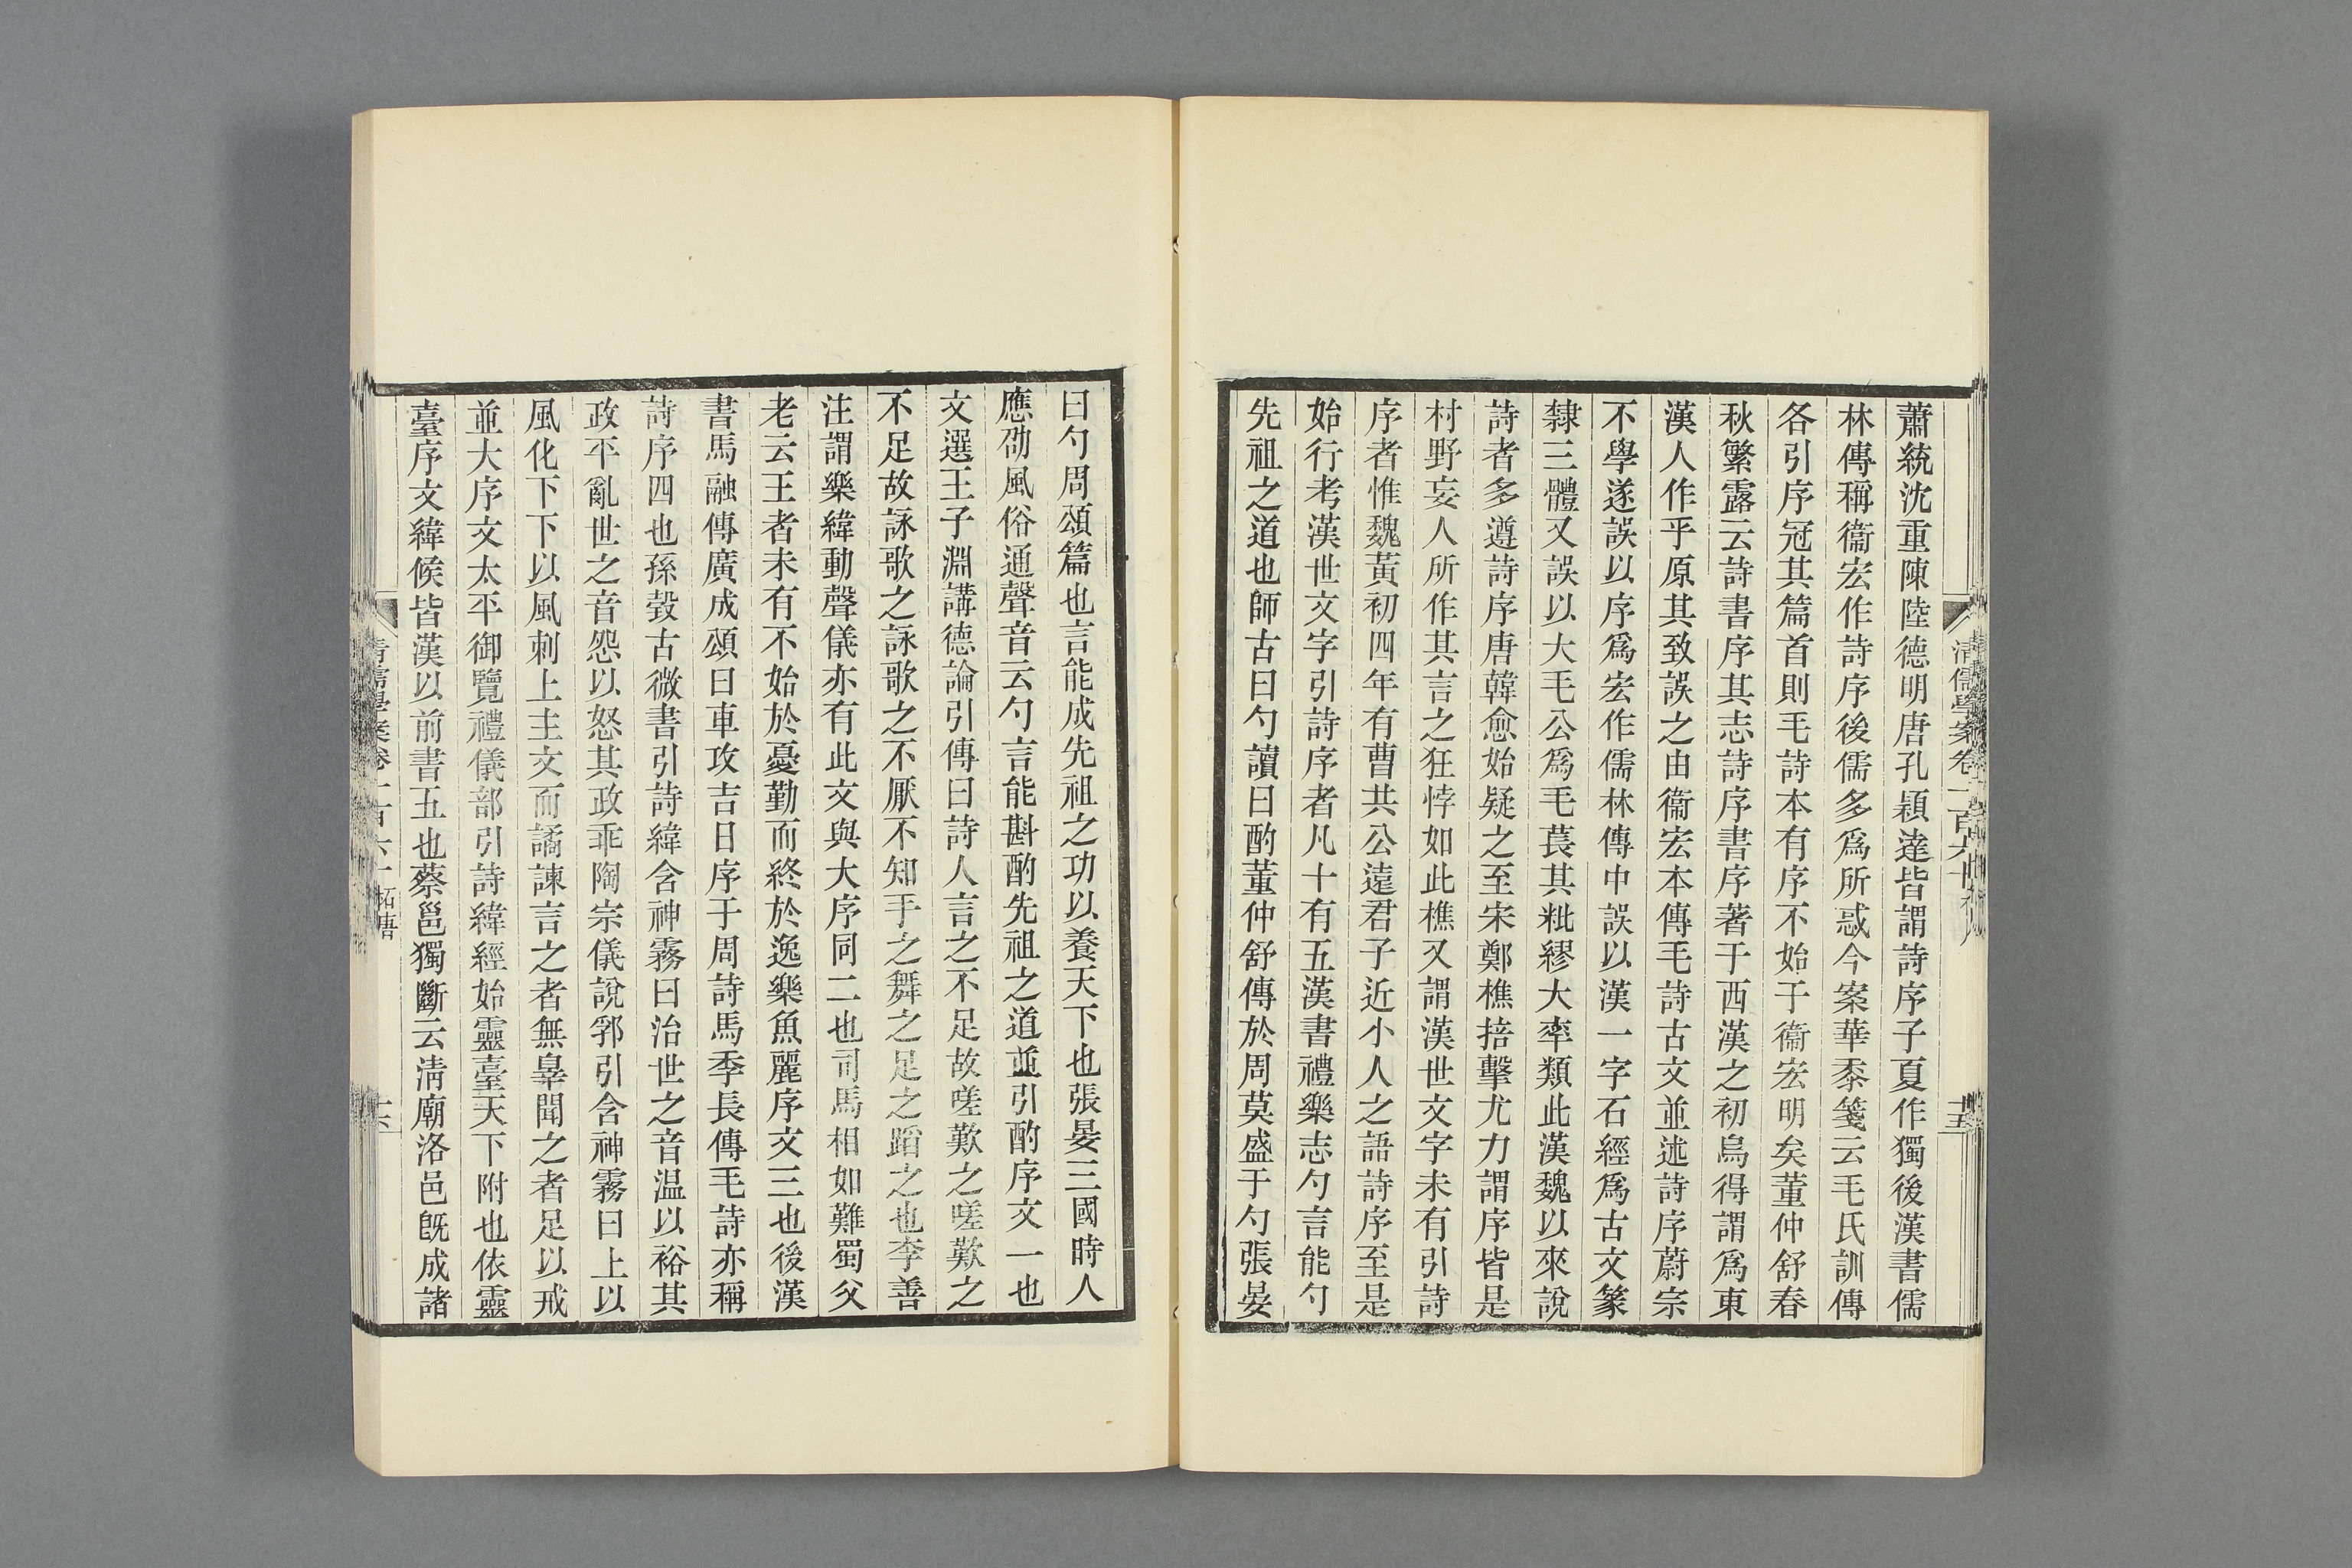 蕭統沈重陳陸德明唐孔穎達皆謂詩序子夏作獨後漢書儒
林傳稱衞宏作詩序後儒多爲所惑今案華黍箋云毛氏訓傳
各引序冠其篇首則毛詩本有序不始于衞宏明矣董仲舒春
秋繁露云詩書序其志詩序書序著于西漢之初烏得謂爲東
漢人作乎原其致誤之由衞宏本傳毛詩古文並述詩序蔚宗
不學遂誤以序爲宏作儒林傳中誤以漢一字石經爲古文篆
隸三體又誤以大毛公爲毛萇其粃繆大率類此漢魏以來說
詩者多遵詩序唐韓愈始疑之至宋鄭樵掊擊尤力謂序皆是
村野妄人所作其言之狂悖如此樵又謂漢世文字未有引詩
序者惟魏黃初四年有曹共公遠君子近小人之語詩序至是
始行考漢世文字引詩序者凡十有五漢書禮樂志勺言能勺
先祖之道也師古曰勺讀曰酌董仲舒傳於周莫盛于勺張晏
曰勺周頌篇也言能成先祖之功以養天下也張晏三國時人
應劭風俗通聲音云勺言能斟酌先祖之道並引酌序文一也
文選王子淵講德論引傳曰詩人言之不足故嗟歎之嗟歎之
不足故詠歌之詠歌之不厭不知手之舞之足之蹈之也李善
注謂樂緯動聲儀亦有此文與大序同二也司馬相如難蜀父
老云王者未有不始於憂勤而終於逸樂魚麗序文三也後漢
書馬融傳廣成頌曰車攻吉日序于周詩馬季長傳毛詩亦稱
詩序四也孫瑴古微書引詩緯含神霧曰治世之音温以裕其
政平亂世之音怨以怒其政乖陶宗儀說郛引含神霧曰上以
風化下下以風刺上主文而譎諫言之者無辠聞之者足以戒
並大序文太平御覽禮儀部引詩緯經始靈臺天下附也依靈
臺序文緯候皆漢以前書五也蔡邕獨斷云淸廟洛邑旣成諸